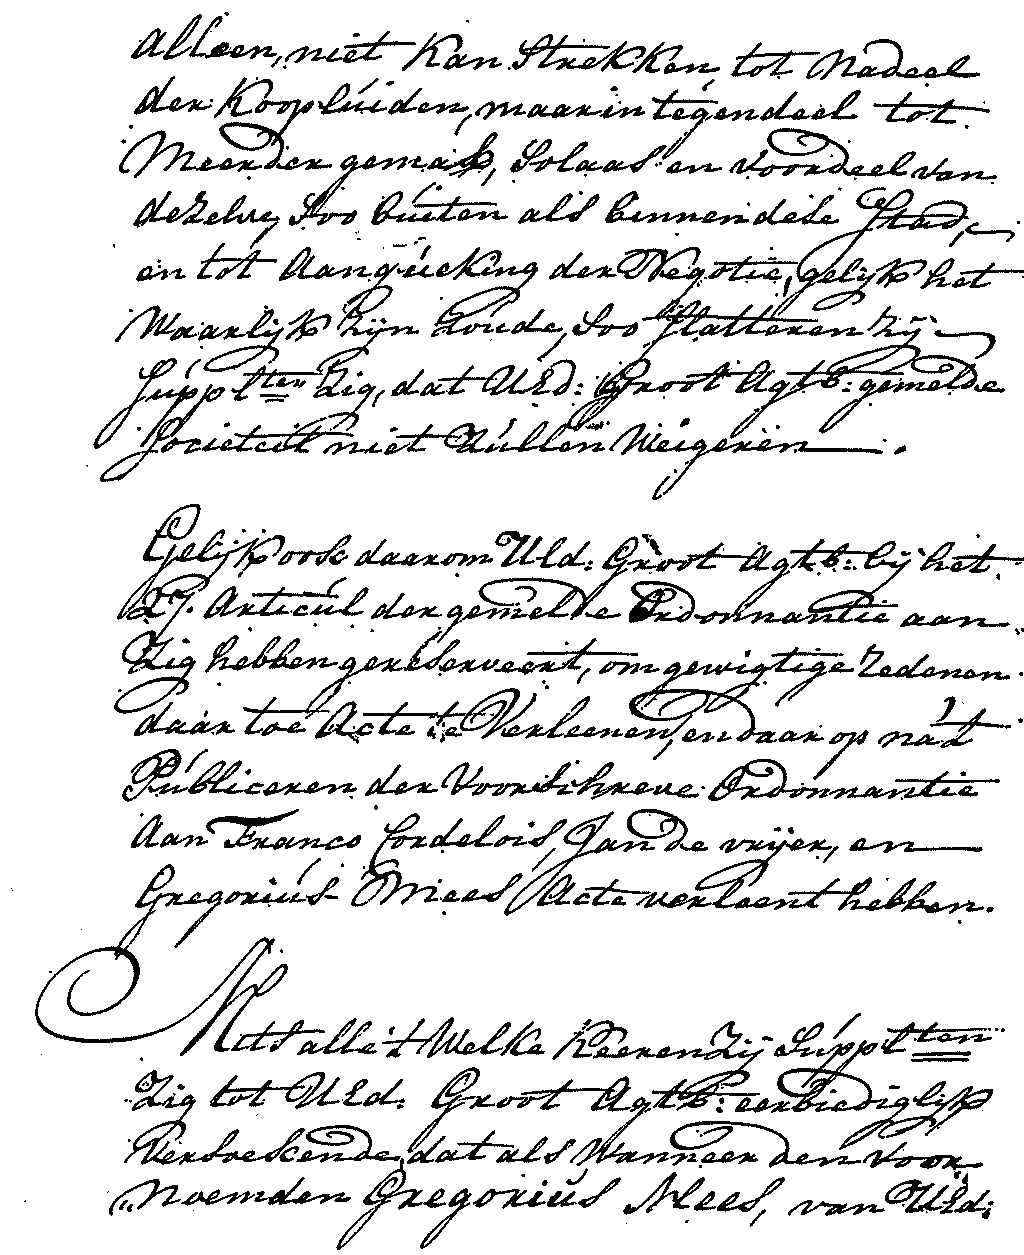 alleen, niet kan strekken, tot Nadeel
der Koopluiden, maar in tegendeel tot
Meerder gemak, Solaas en voordeel van
dezelve, Soo buiten als binnen dese Stad,
en tot Aanqúeking der Negotie, gelijk het
Waarlijk Zijn Zoude, Soo flatteren Zij
Súppltten Zig, dat UEd: Groot Agtb: gemelde
Societeit niet Zúllen Weigeren.
Gelijk ook daarom UEd: Groot Agtb: bij het
27. Articúl der gemelde Ordonnantie aan
Zig hebben gereserveert, om gewigtige redenen
daar toe Acte te Verleenen, en daar op na't
Públiceren der Voorschreve Ordonnantie
Aan Franco Cordelois, Jan de vrijer, en
Gregoriús Mees Acte verleent hebben.
Mits alle 't Welke Keeren Zij Súppltten
Zig tot UEd: Groot Agtb: eerbiediglijk
Versoekende, dat als Wanneer den Voor
„Noemden Gregoriús Mees, van UEd: